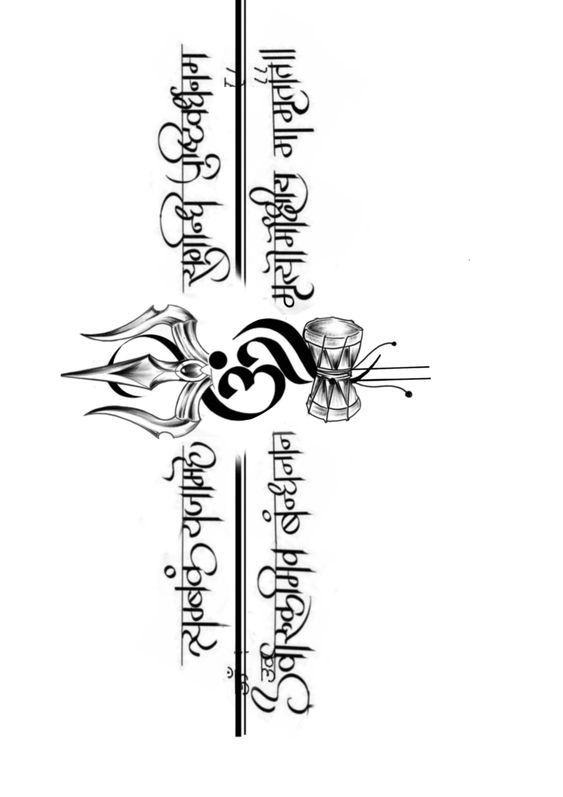 त्रयम्बकं यजामहे सुगन्धि पुष्टिवर्धनम
ॐ
उर्वारुकमिव बंन्धनान मृत्योर्मोक्षीय मामृतात॥